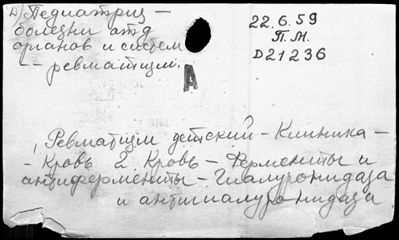 д) Педиатрия –
болезни отд
органов и систем
– ревматизм.
22.6.59
П.М.
D21236
А
Ревматизм детский – Клиника –
– Кровь 2. Кровь – Ферменты и
антиферменты – Гиалуронидаза
и антигиалуронидаза